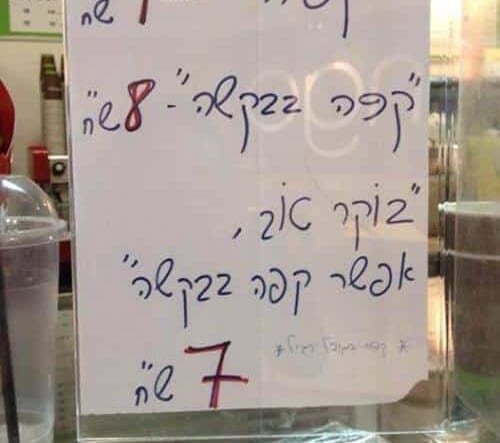 קפה שח
"קפה בבקשה" - 8 ש"ח
"בוקר טוב,
אפשר קפה בבקשה"
* קפה בגודל רגיל *
7 ש"ח